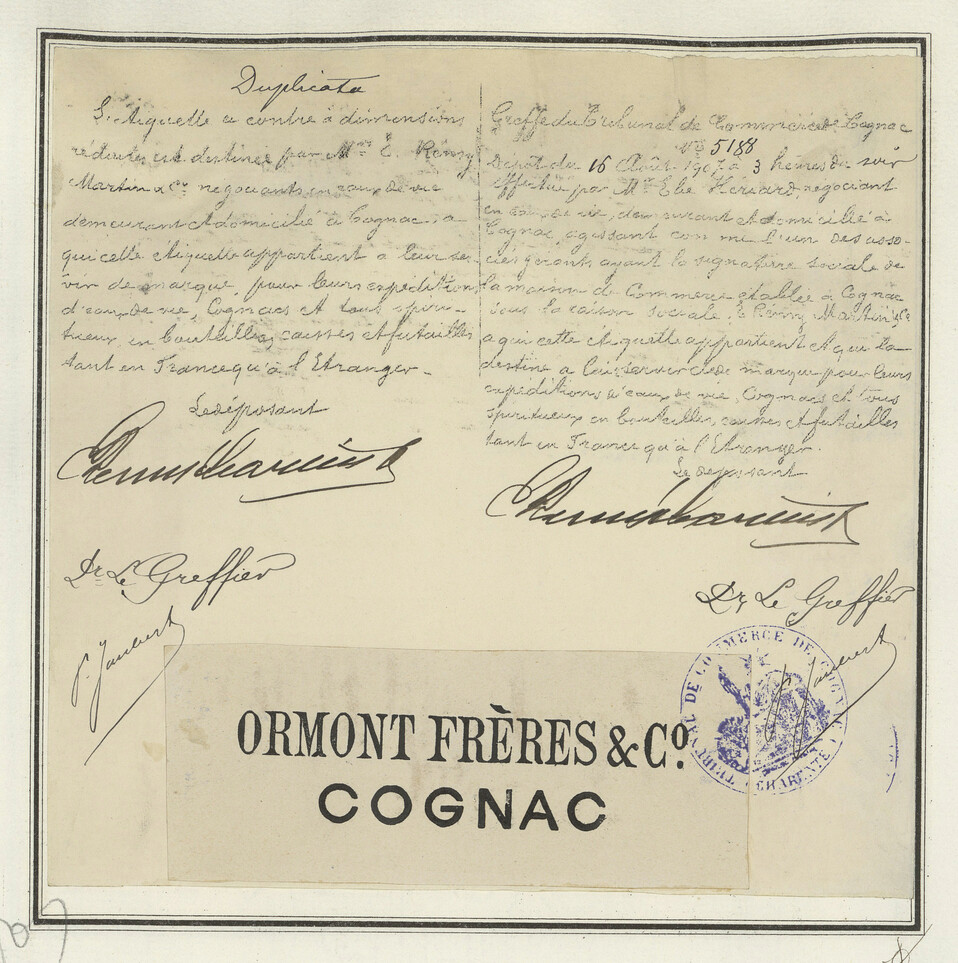 Duplicata
L'étiquette ci contre à dimensions
réduites est destinée par Mrs E. Remy
Martin & Cie négociants en eaux de vie
demeurant et domicilié à Cognac, à
qui cette étiquette appartient à leur ser-
vir de marque, pour leurs expéditions
d'eaux de vie, Cognacs et tous spiri-
tueux en bouteilles, caisses et futailles
tant en France qu'à l'Etranger.
Le déposant
E Remy Martin & Co
Dr Le Greffier
P. Jaubert
Greffe du Tribunal de Commerce de Cognac
No 5188
Dépôt du 16 Août 1907 à 3 heures du soir
effectué par Mr Elie Hériard, négociant
en eaux de vie, demeurant et domicilié à
Cognac, agissant comme l'un des asso-
ciés gérants ayant la signature sociale de
la maison de Commerce établie à Cognac
sous la raison sociale, E. Remy Martin & Cie
à qui cette étiquette appartient et qui la
destine à leur servir de marque pour leurs
expéditions d'eaux de vie, Cognacs et tous
spiritueux en bouteilles, caisses et futailles
tant en France qu'à l'Etranger.
Le déposant
E Remy Martin & Co
Dr Le Greffier
P. Jaubert
TRIBUNAL DE COMMERCE DE COGNAC
(CHARENTE)
ORMONT FRÈRES & Co.
COGNAC